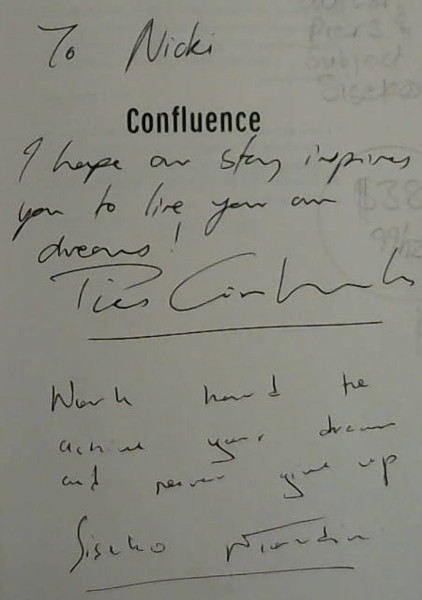 To Nicki
Confluence
I hope our story inspires
you to live your own
dreams!
Piers
Work hard to
achive your dream
and never give up
Siscko
Piers &
Subject
$38
99/12